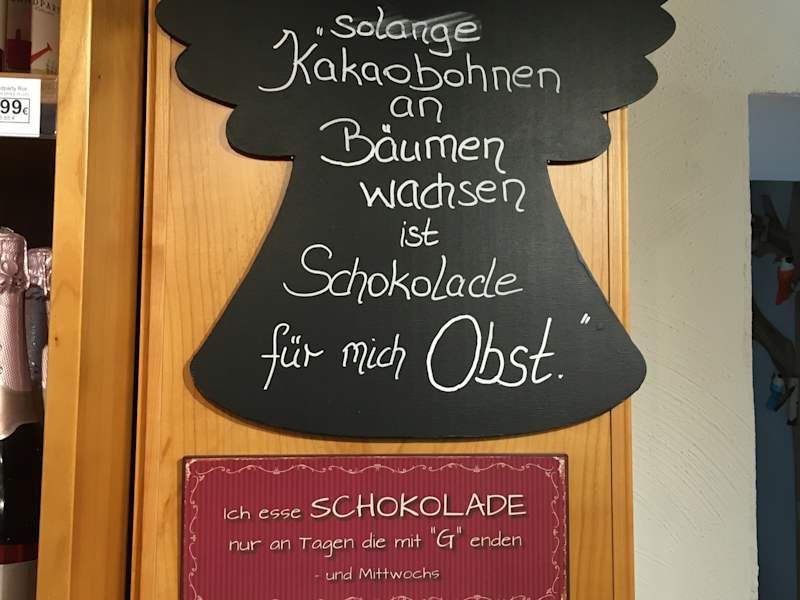 "solange
Kakaobohnen
an
Bäumen
wachsen
ist
Schokolade
für mich Obst."
Ich esse SCHOKOLADE
nur an Tagen die mit "G" enden
- und Mittwochs
99€